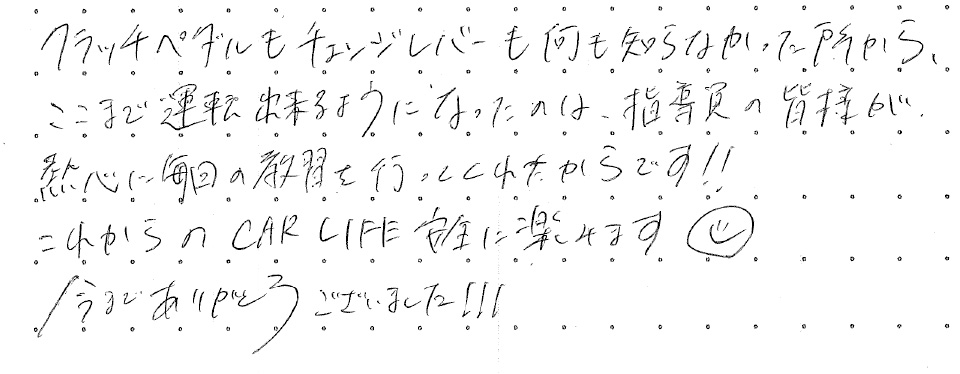 クラッチペダルもチェンジレバーも何も知らなかった所から、
ここまで運転出来るようになったのは、指導員の皆様が、
熱心に毎回の教習を行ってくれたからです!!
これからのCAR LIFE安全に楽しみます
今までありがとうございました!!!